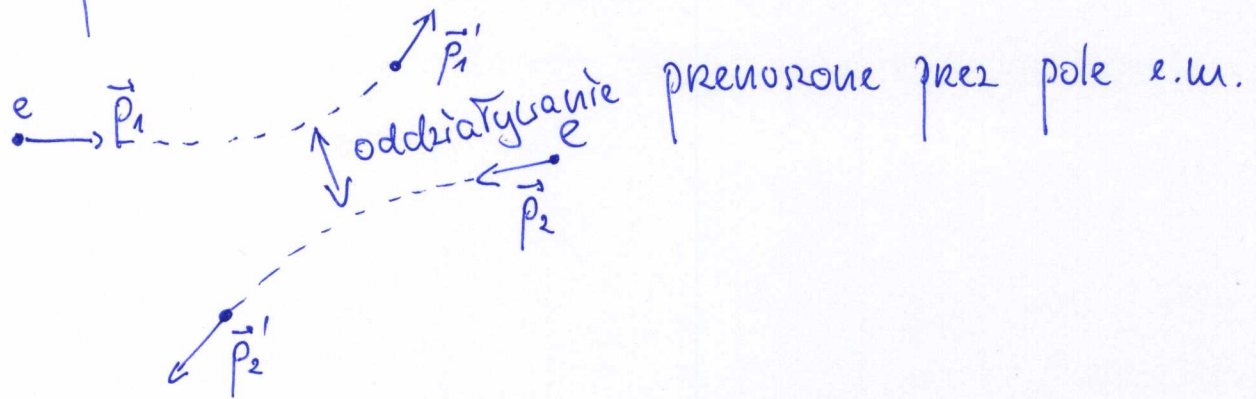 p⃗₁'
e p⃗₁
oddziaływanie przenoszone przez pole e.m.
e
p⃗₂
p⃗₂'